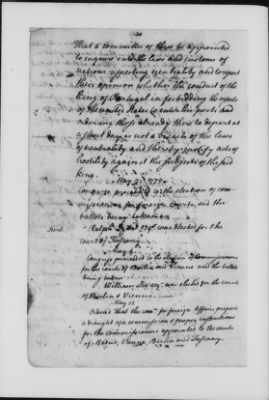 That a committee of three be appointed
to enquire into the laws and customs of
nations respecting neutrality and to report
their opinion whether the conduct of the
King of Portugal in forbidding the vessels
of the united States to enter his ports and
ordering those already there to depart at
a short day is not a breach of the laws
of neutrality and thereby justify acts of
hostility against the subjects of the said
king.
May 7, 1777
Congress proceeded to the election of com
missioners for foreign courts and the
ballots being taken
Ralph Izard esqr. was elected for the
court of Tuscany.
May 9
Congress proceeded to the election of commissioners
for the courts of Berlin and Vienna and the ballots
being taken
William Lee esqr. was elected for the courts
of Berlin & Vienna.
May 12
Ordered that the comee. for foreign affairs prepare
a draught of a commission & proper instructions
for the commissioners appointed to the courts
of Vienna, Berlin and Tuscany.